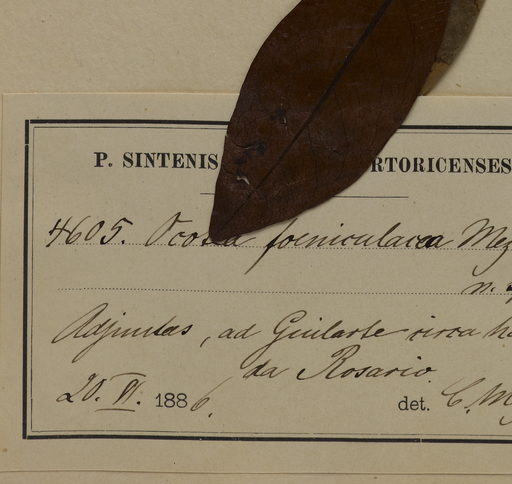 P. SINTENIS RTORICENSES
4605. Ocotea foeniculacea Mez
n.
Adjuntas, ad Guilarte circa ha
da Rosario.
20. VI. 1886. det. C. M